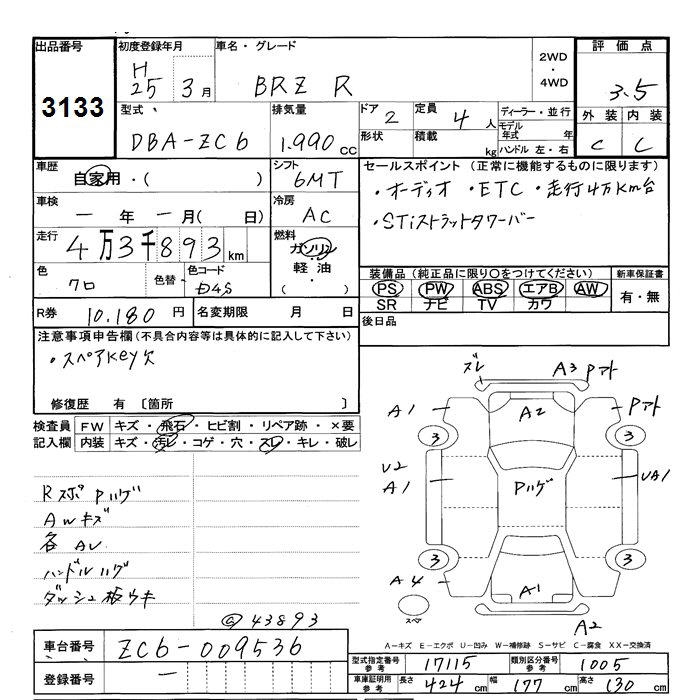 出品番号
3133
初度登録年月
H
25 3月
車名・グレード
BRZ R
2WD
・
4WD
評価点
3.5
外装 内装
C C
型式
DBA-ZC6
排気量
1.990cc
ドア 2
形状
定員 4人
積載 kg
ディーラー・並行
モデル
年式 年
ハンドル 左・右
車歴
自家用・( )
シフト
6MT
車検
— 年 — 月( 日)
冷房
AC
走行
4万3千893km
燃料
ガソリン
・
軽油
( )
色
クロ
色替
色コード
D4S
セールスポイント(正常に機能するものに限ります)
・オーディオ ・ETC ・走行4万Km台
・STiストラットタワーバー
装備品(純正品に限り○をつけてください)
PS PW ABS エアB AW
SR ナビ TV カワ
新車保証書
有・無
R券 10.180円
名変期限 月 日
後日品
注意事項申告欄(不具合内容等は具体的に記入して下さい)
・スペアKey欠
修復歴 有 〔箇所 〕
検査員
記入欄
FW キズ・飛石・ヒビ割・リペア跡・×要
内装 キズ・汚レ・コゲ・穴・スレ・キレ・破レ
Rスポ Pハゲ
AWキズ
各AU
ハンドルハゲ
ダッシュ板ウキ
◎43893
ズレ A3 Pアト
A1 A2 Pアト
3 3
U2
A1 Pハゲ UA1
3 3
A4 A1
スペア A2
A—キズ E—エクボ U—凹み W—補修跡 S—サビ C—腐食 XX—交換済
車台番号 ZC6-009536
登録番号 —
型式指定番号
参考
17115
類別区分番号
参考
1005
車庫証明用
参考
長さ 424cm 幅 177cm 高さ 130cm